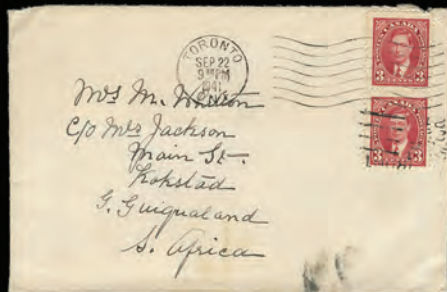 TORONTO
SEP 22
9 PM
1941
CANADA
3 3
CANADA
3 3
Mrs M. Wootton
C/o Mrs Jackson
Main St.
Kokstad
G. Guiqualand
S. Africa